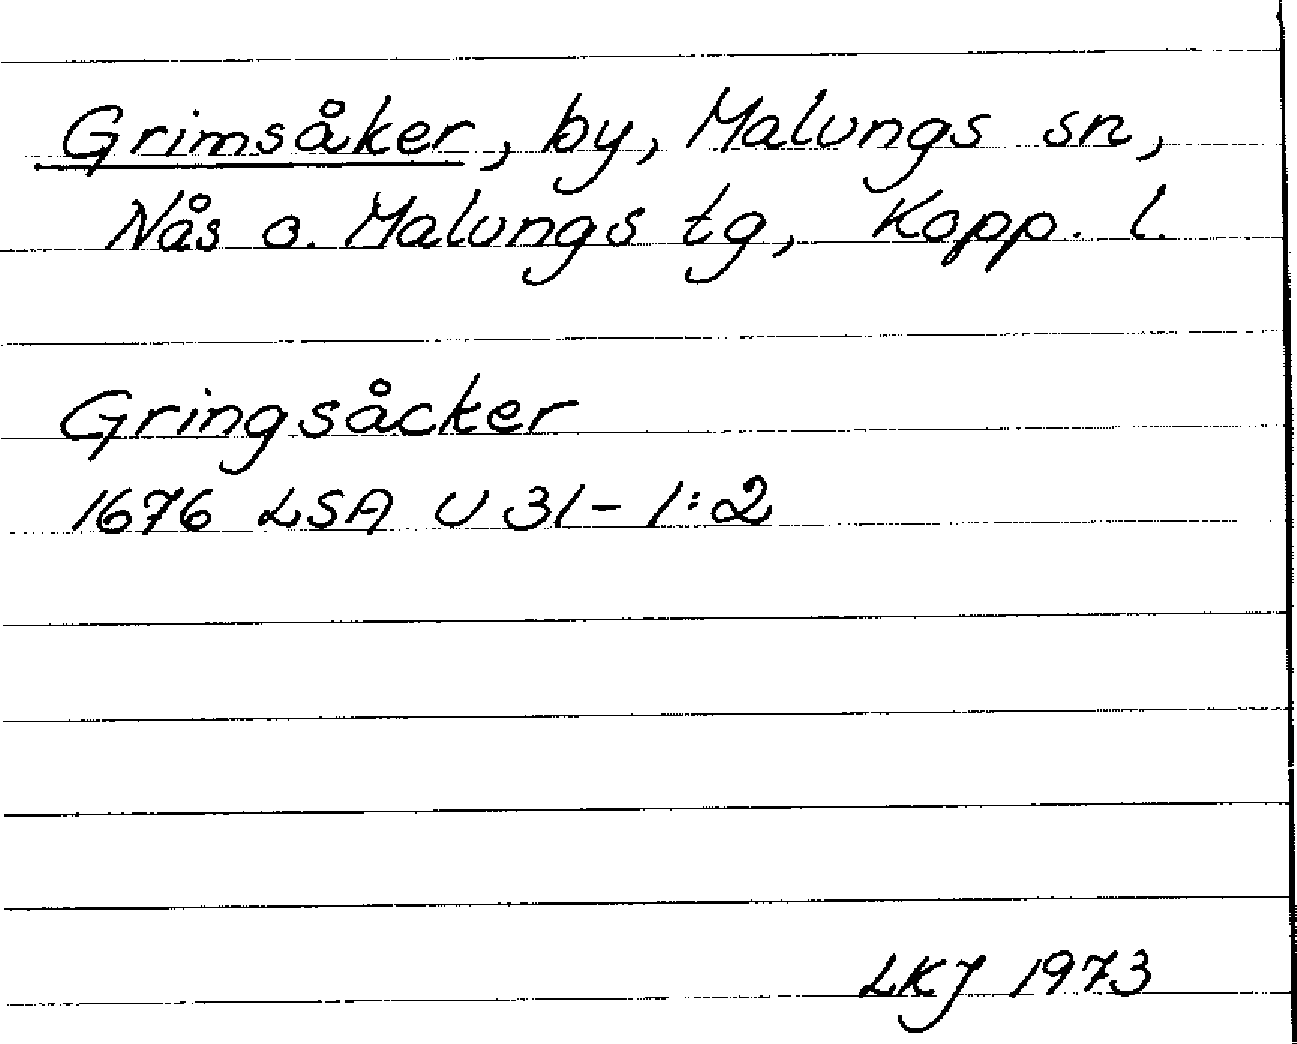 Grimsåker, by, Malungs sn,
Nås o. Malungs tg, Kopp. l.
Gringsåcker
1676 LSA U 31-1:2
LKJ 1973